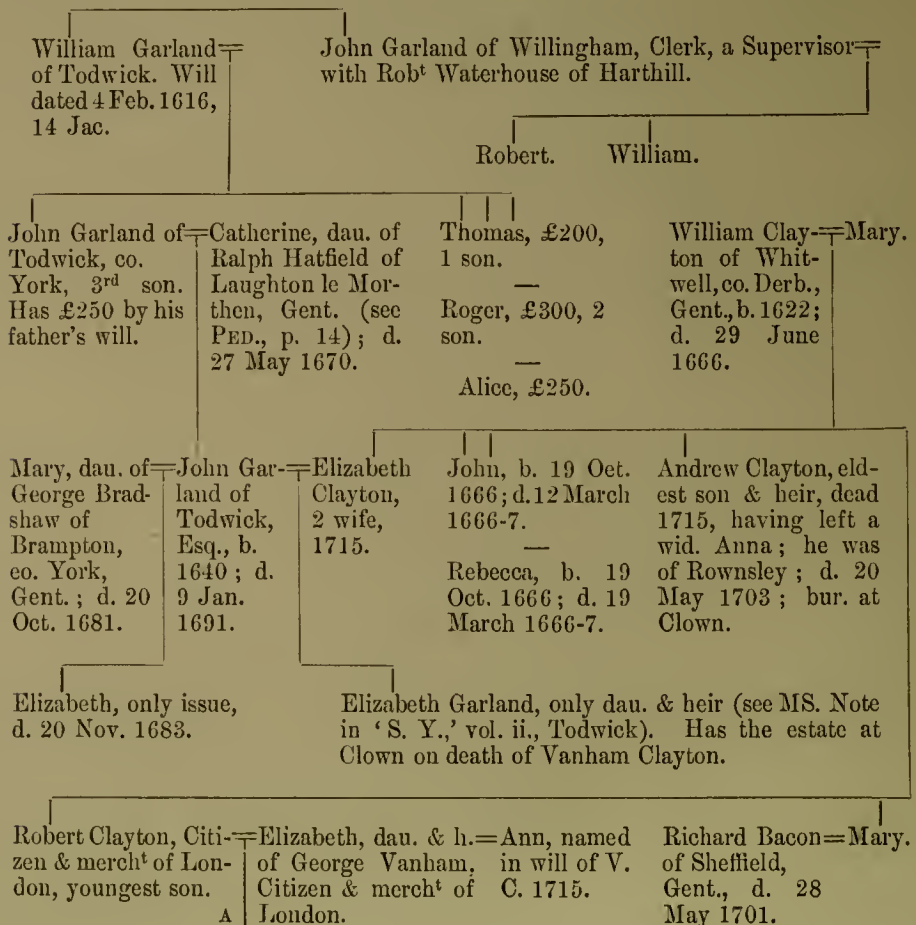 William Garland
of Todwick. Will
dated 4 Feb. 1616,
14 Jac.
John Garland of Willingham, Clerk, a Supervisor
with Robt Waterhouse of Harthill.
Robert. William.
John Garland of
Todwick, co.
York, 3rd son.
Has £250 by his
father's will.
Catherine, dau. of
Ralph Hatfield of
Laughton le Mor-
then, Gent. (see
PED., p. 14); d.
27 May 1670.
Thomas, £200,
1 son.
—
Roger, £300, 2
son.
—
Alice, £250.
William Clay-
ton of Whit-
well, co. Derb.,
Gent., b. 1622;
d. 29 June
1666.
Mary.
Mary, dau. of
George Brad-
shaw of
Brampton,
co. York,
Gent.; d. 20
Oct. 1681.
John Gar-
land of
Todwick,
Esq., b.
1640; d.
9 Jan.
1691.
Elizabeth
Clayton,
2 wife,
1715.
John, b. 19 Oct.
1666; d. 12 March
1666-7.
—
Rebecca, b. 19
Oct. 1666; d. 19
March 1666-7.
Andrew Clayton, eld-
est son & heir, dead
1715, having left a
wid. Anna; he was
of Rownsley; d. 20
May 1703; bur. at
Clown.
Elizabeth, only issue,
d. 20 Nov. 1683.
Elizabeth Garland, only dau. & heir (see MS. Note
in 'S. Y.,' vol. ii., Todwick). Has the estate at
Clown on death of Vanham Clayton.
Robert Clayton, Citi-
zen & mercht of Lon-
don, youngest son.
A
Elizabeth, dau. & h.
of George Vanham,
Citizen & mercht of
London.
Ann, named
in will of V.
C. 1715.
Richard Bacon
of Sheffield,
Gent., d. 28
May 1701.
Mary.